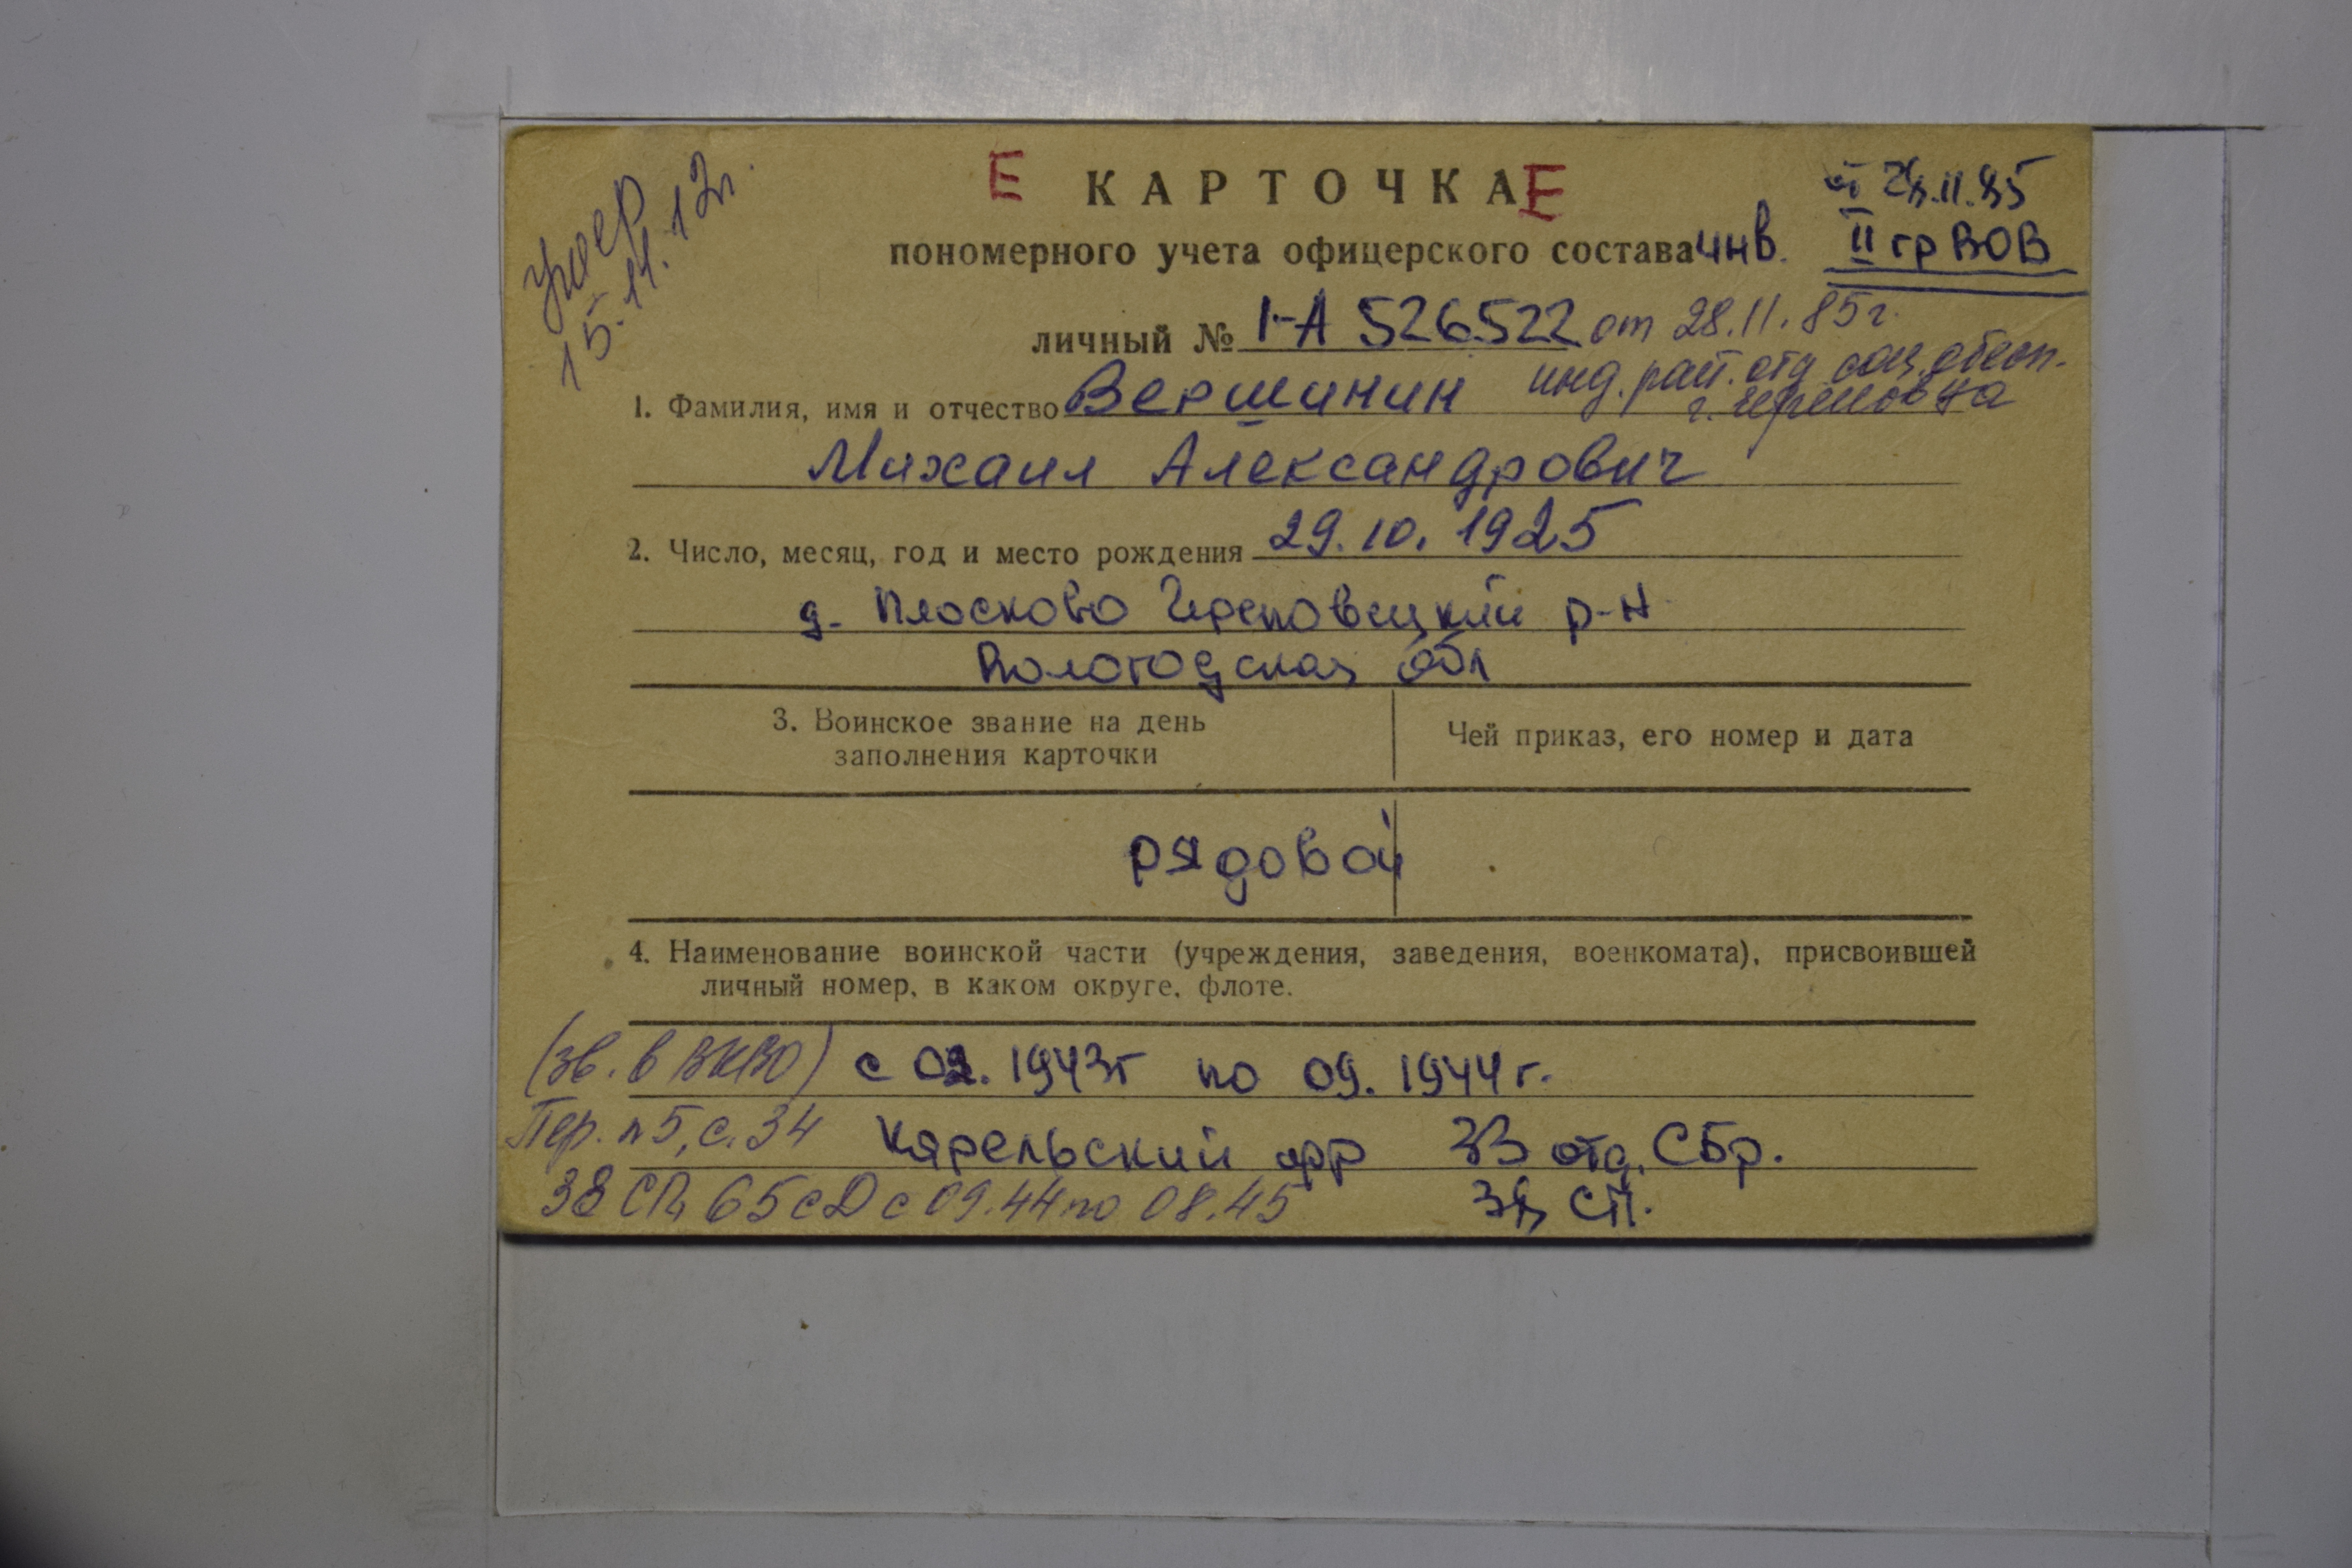 умер
15.11.12г.
Е КАРТОЧКА Е
от 28.11.85
пономерного учета офицерского состава инв. II гр ВОВ
личный № 1-А 526522 от 28.11.85г.
1. Фамилия, имя и отчество Вершинин инд. рай. отд соц. обесп.
г. Череповца
Михаил Александрович
2. Число, месяц, год и место рождения 29.10.1925
д. Плосково Череповецкий р-н
Вологодская обл
3. Воинское звание на день
заполнения карточки
Чей приказ, его номер и дата
рядовой
4. Наименование воинской части (учреждения, заведения, военкомата), присвоившей
личный номер, в каком округе, флоте.
(зв. в ВКВО) с 02.1943г по 09.1944г.
Пер. п5, с. 34 Карельский фр 33 отд. СБр.
38 СП, 65 сД с 09.44 по 08.45 38 СП.